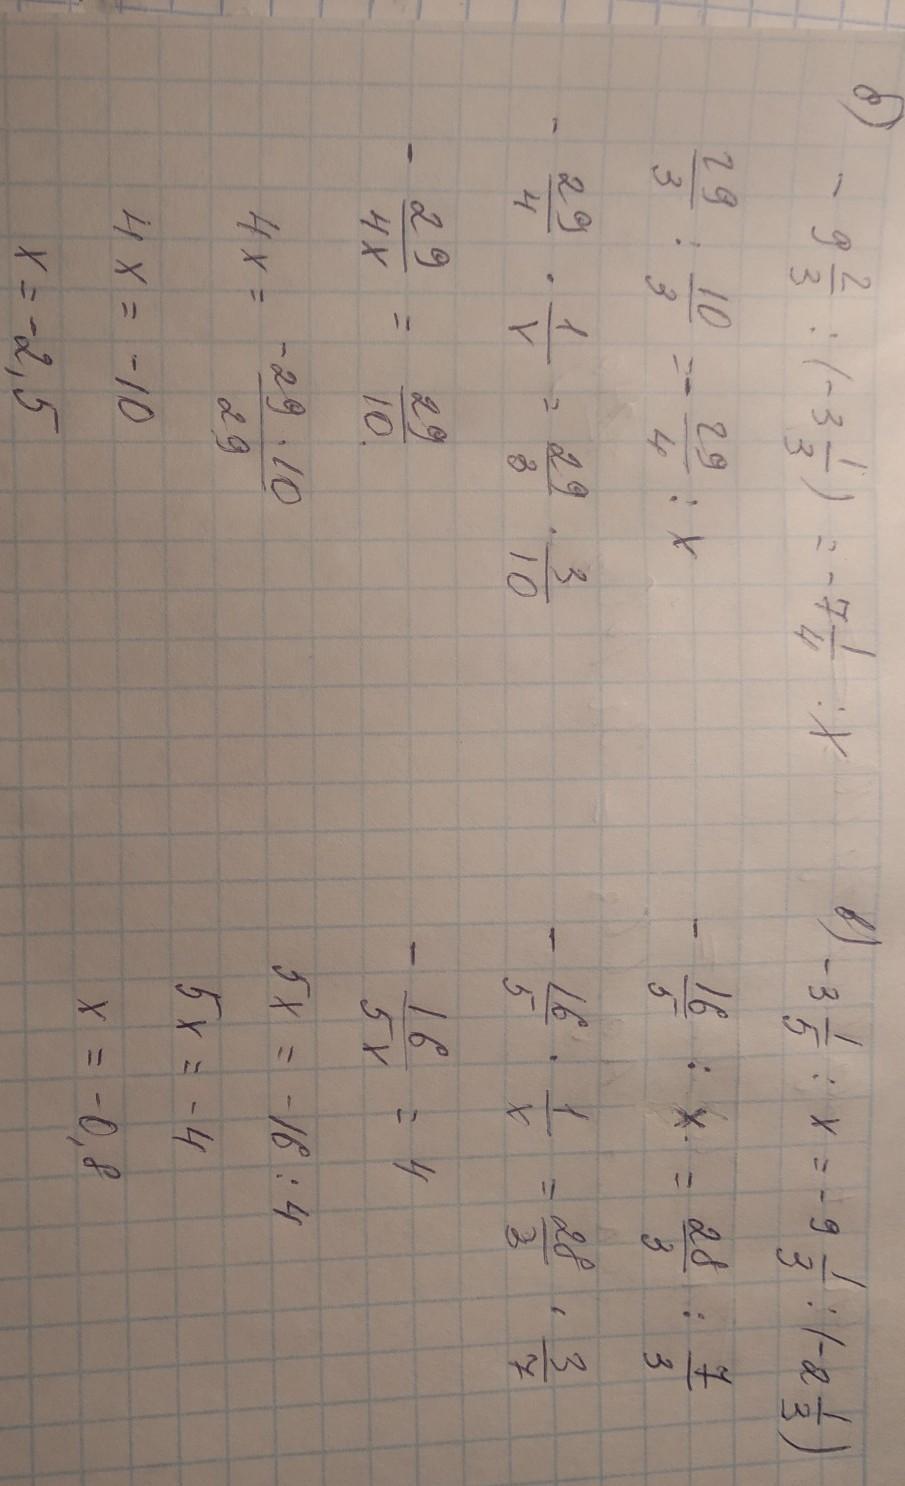 б) - 9 2/3 : (-3 1/3) = -7 1/4 : x
29/3 : 10/3 = - 29/4 : x
- 29/4 · 1/x = 29/3 · 3/10
- 29/4x = 29/10.
4x = -29·10/29
4x = -10
x = -2,5
в) -3 1/5 : x = -9 1/3 : (-2 1/3)
- 16/5 : x = 28/3 : 7/3
- 16/5 · 1/x = 28/3 · 3/7
- 16/5x = 4
5x = -16 : 4
5x = -4
x = -0,8